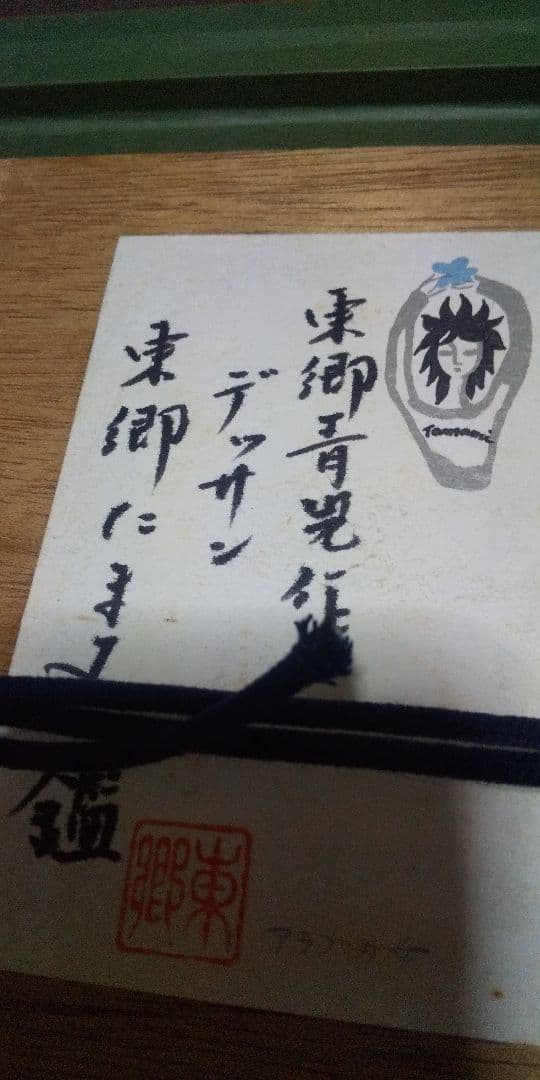 東郷青児作
デッサン
東郷たまみ
鑑
Tamami
東郷